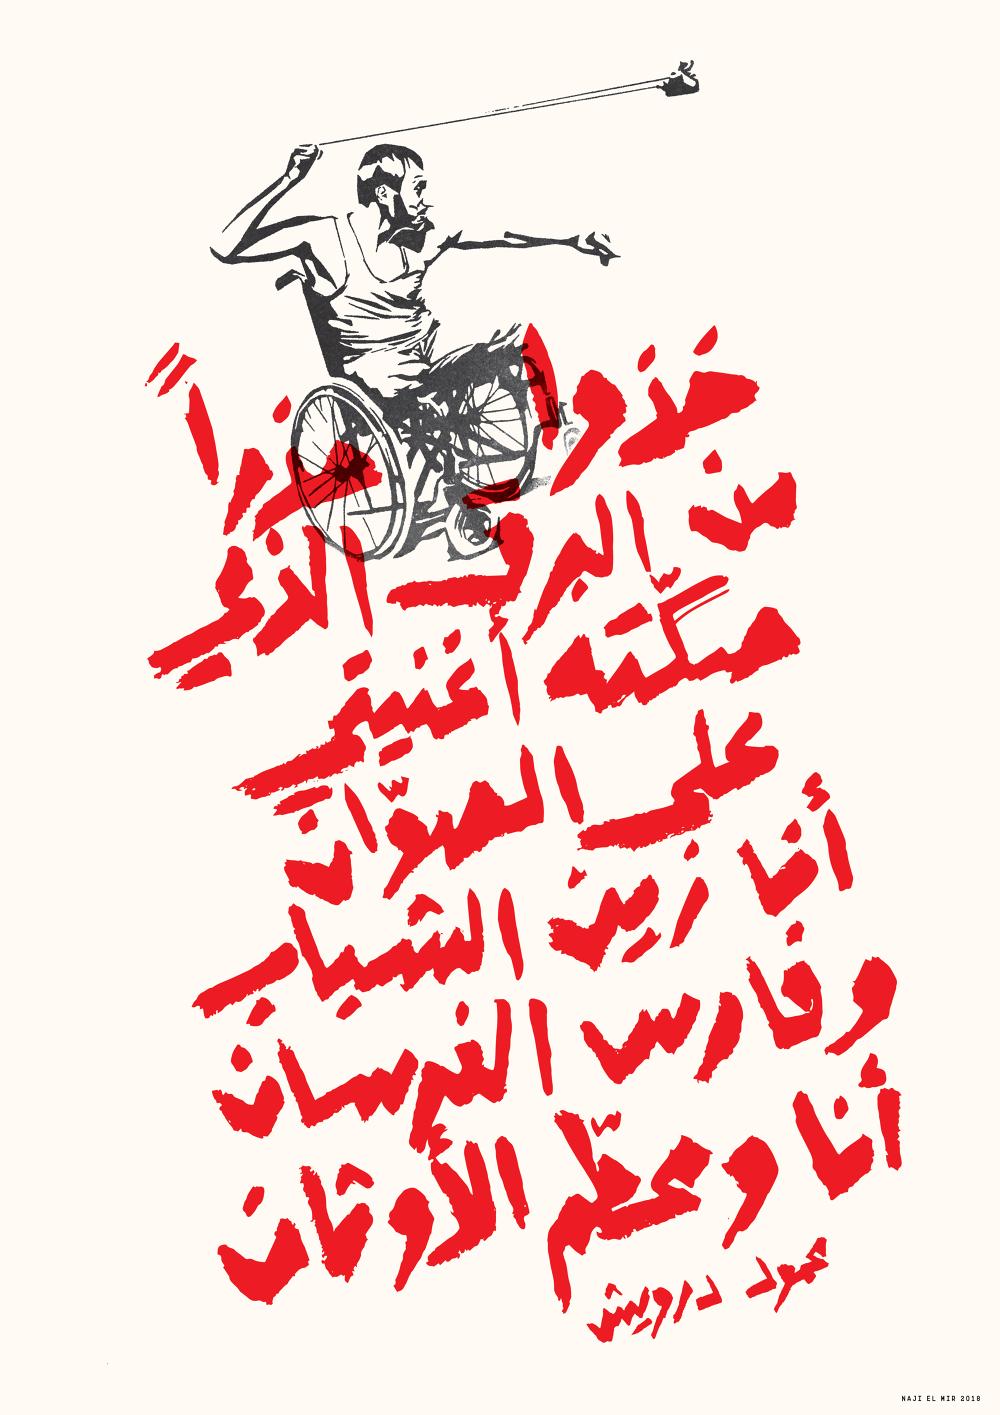 خذوا حذراً
من البرق الذي
صكّته أغنيتي
على الصوّان
أنا زين الشباب
وفارس الفرسان
أنا ومحطّم الأوثان
محمود درويش
NAJI EL MIR 2018